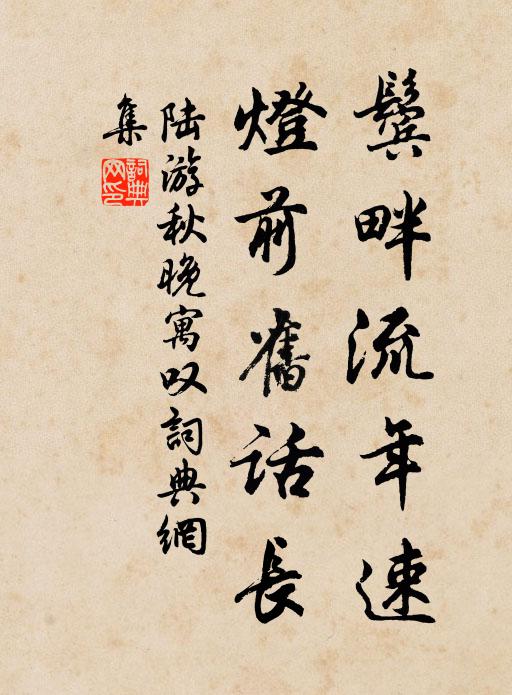 鬢畔流年速
燈前舊話長
陸游秋晚寓叹詞典網
集
詞典
网印